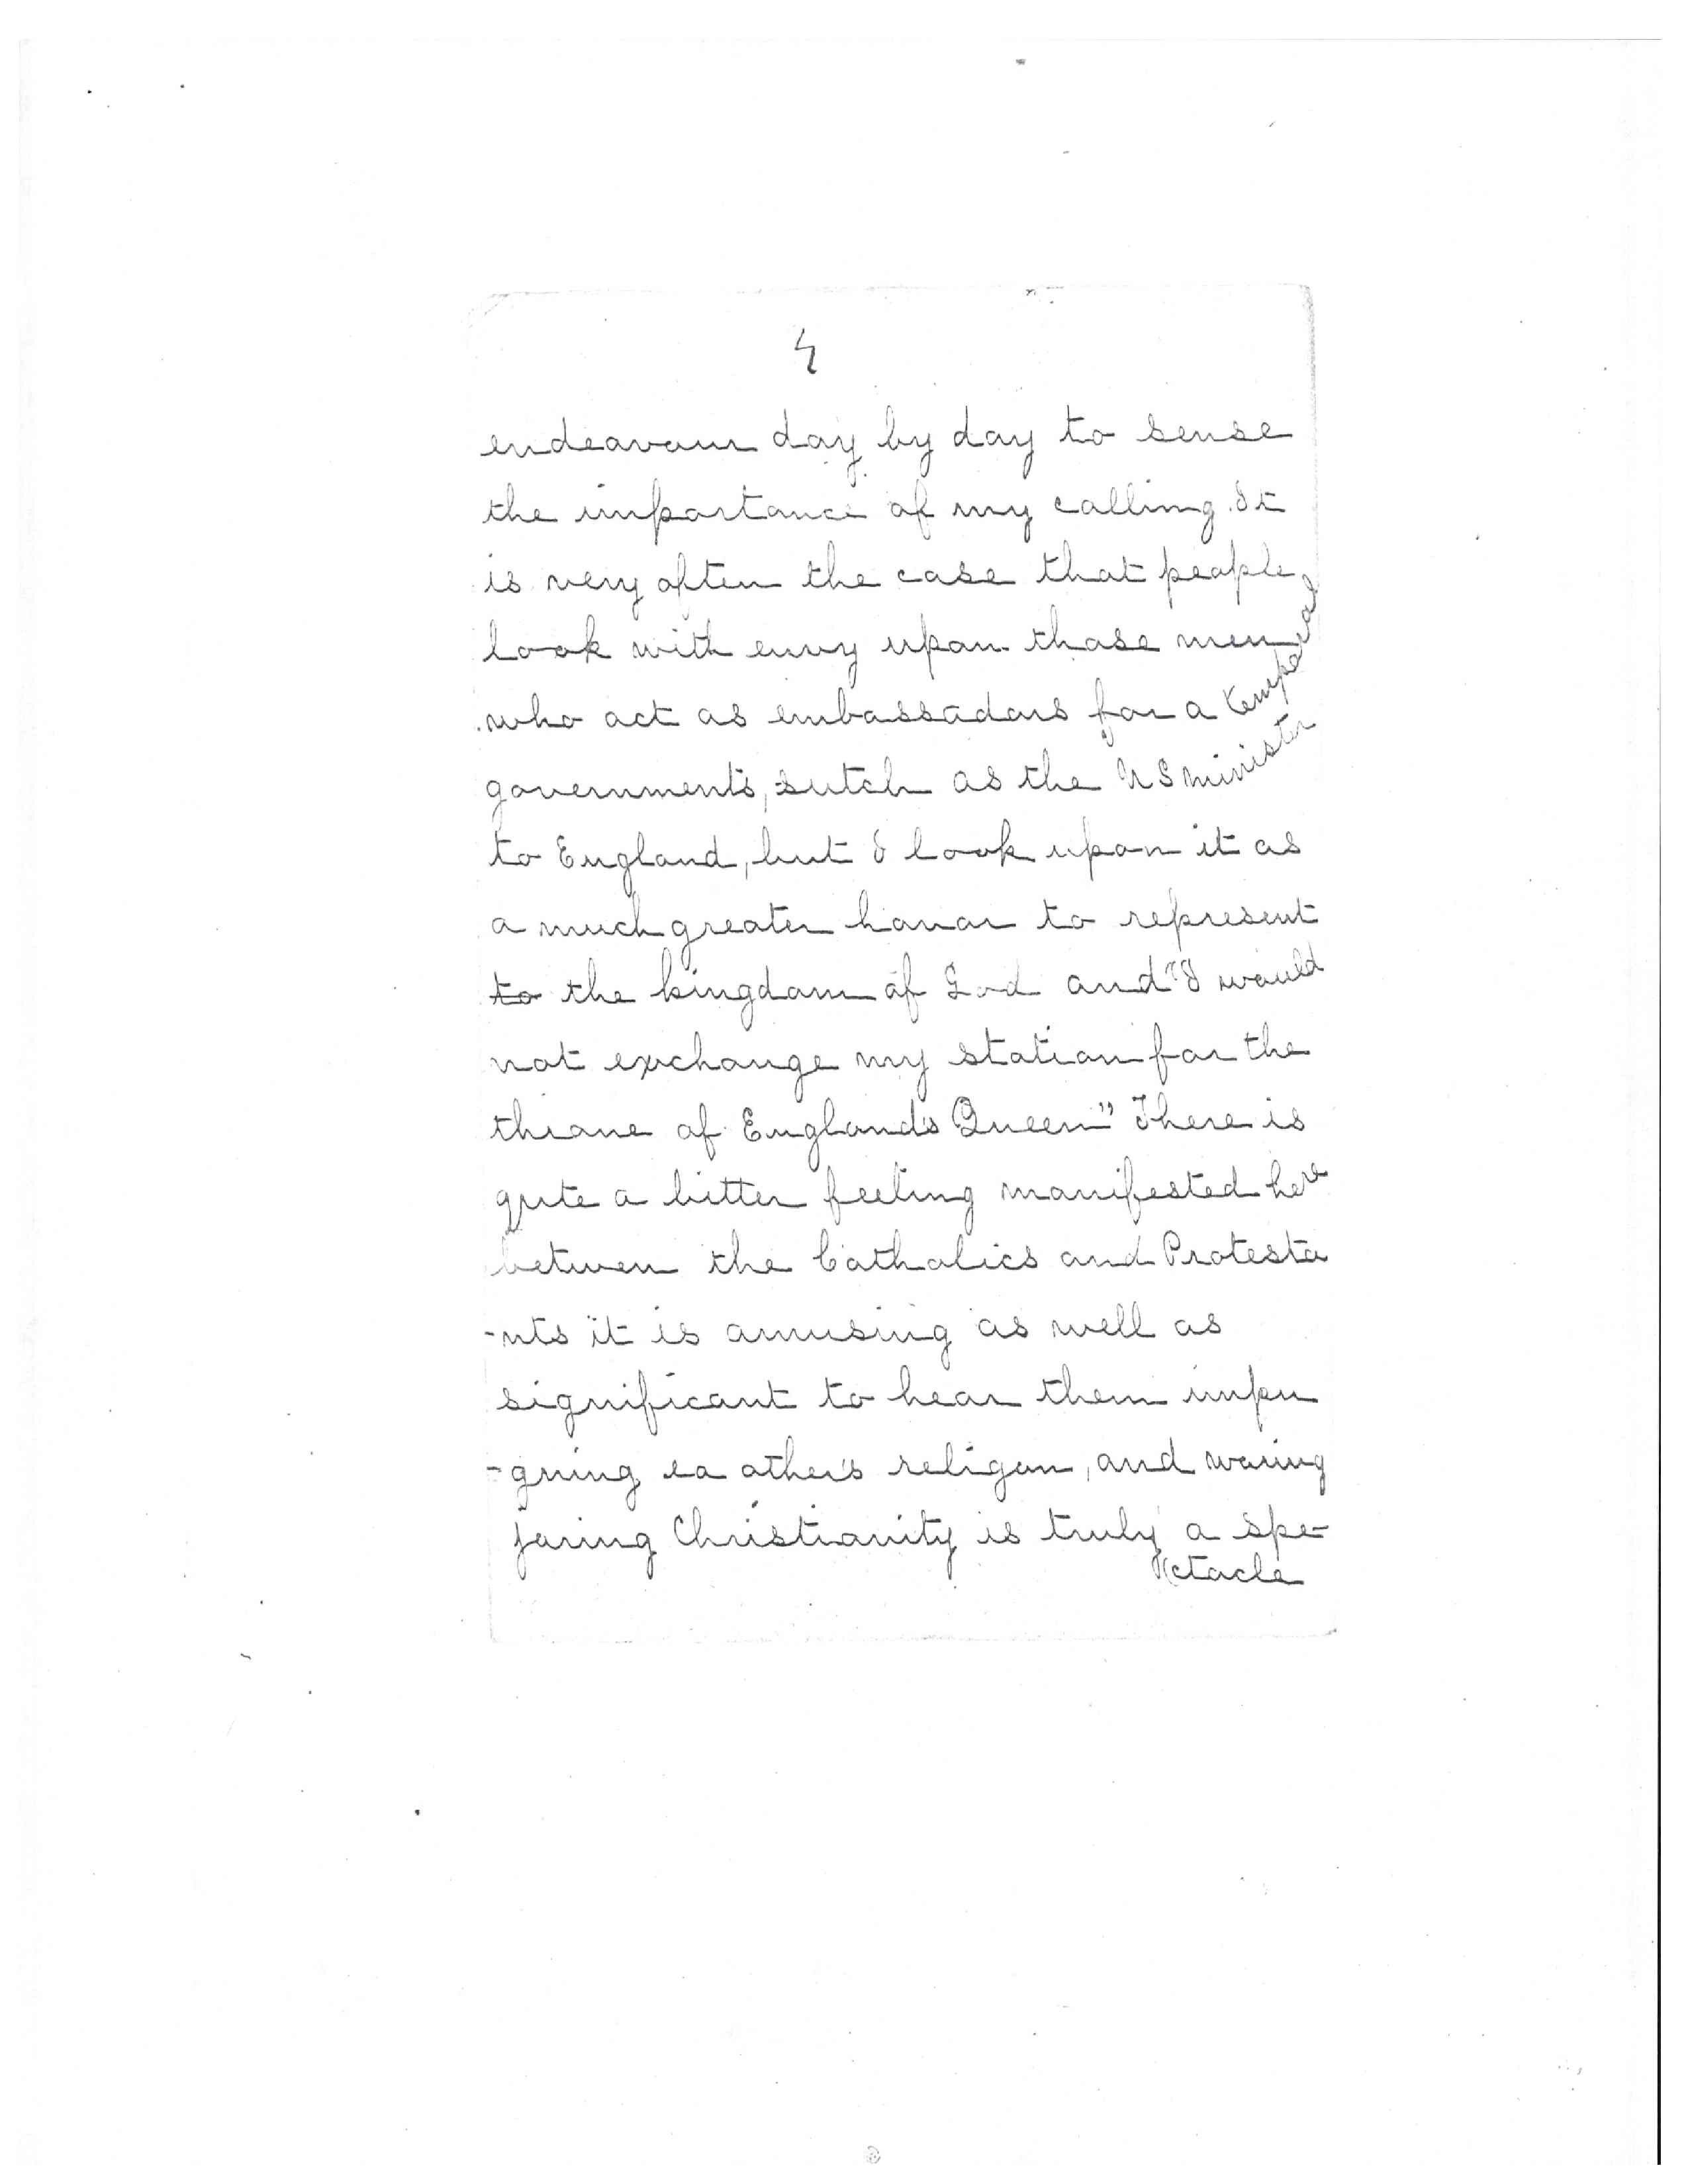 4
endeavour day by day to sense
the importance of my calling. It
is very often the case that people
look with envy upon those men
who act as embassadors for a temporal
governments, sutch as the U S minister
to England, but I look upon it as
a much greater honor to represent
to the kingdom of God and "I would
not exchange my station for the
throne of England's Queen" There is
quite a bitter feeling manifested here
between the Catholics and Protesta
-nts it is amusing as well as
significant to hear them impu
-gning ea other's religon, and waring
jaring Christianity is truly a spe-
ctacle